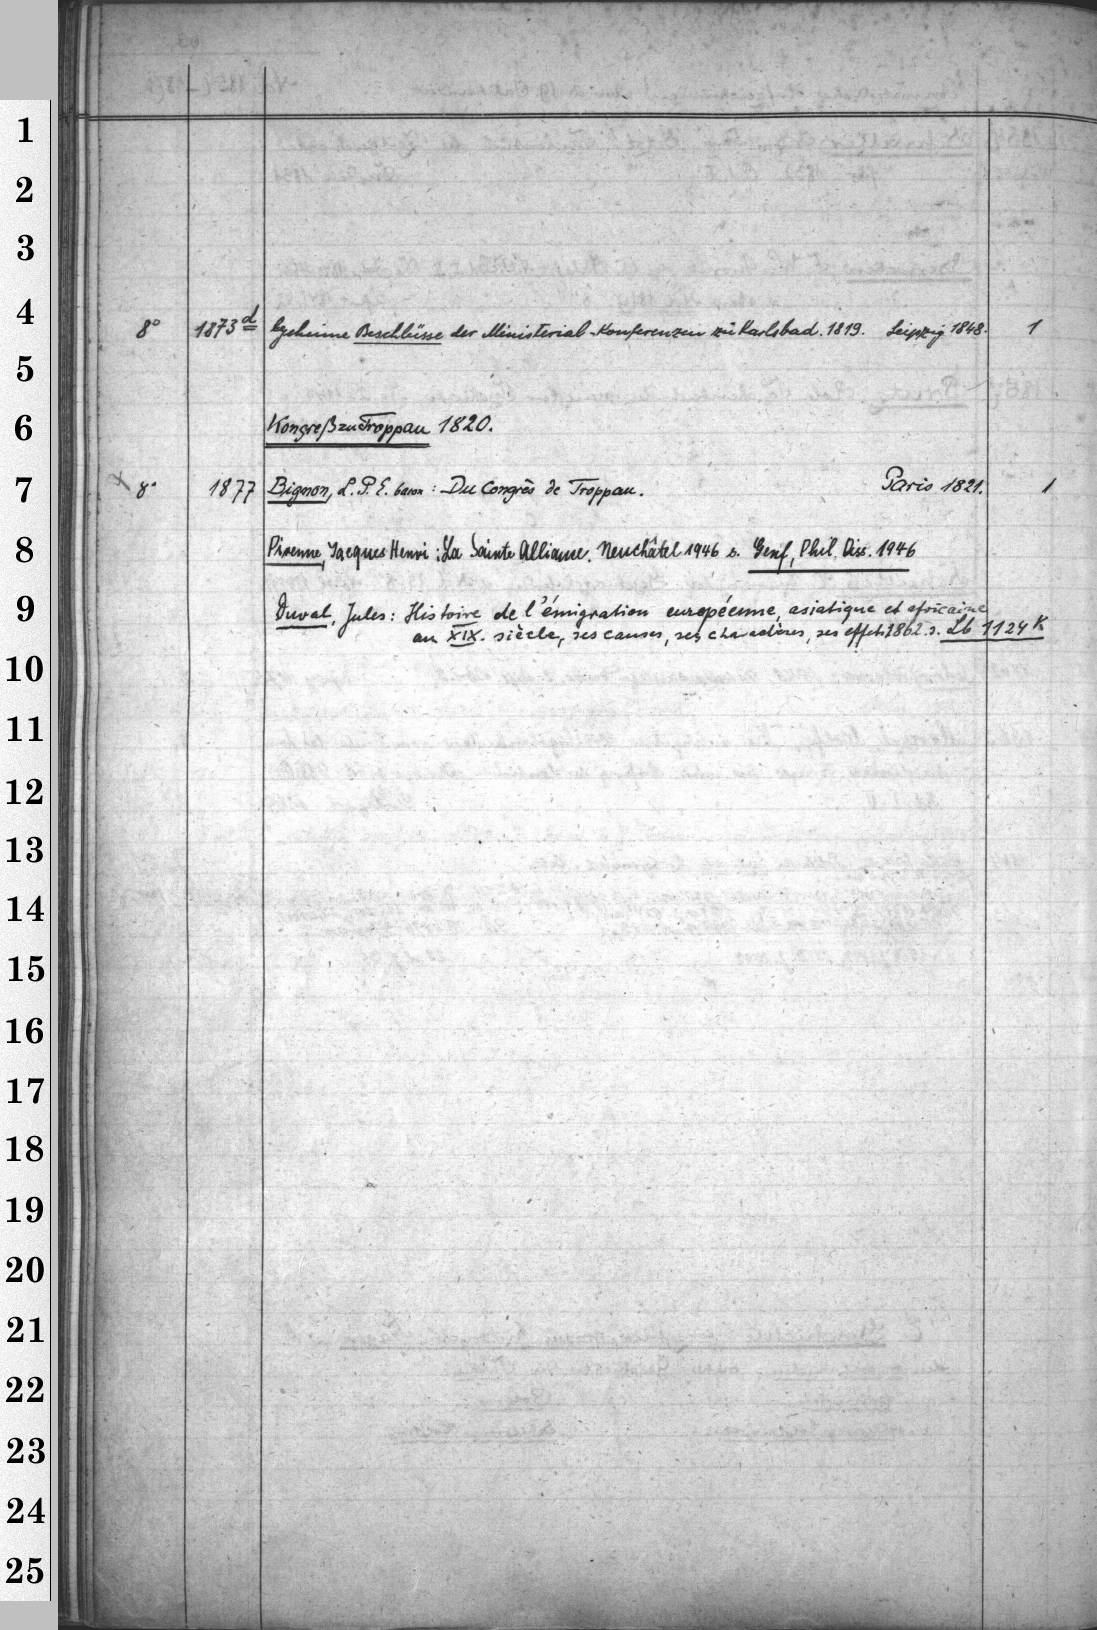 1
2
3
4
8° 1873d Geheime Beschlüsse der Ministerial-Konferenzen zu Karlsbad. 1819. Leipzig 1848. 1
5
6
Kongreß zu Troppau 1820.
7
8° 1877 Bignon, L. P. E. baron : Du Congrès de Troppau. Paris 1821. 1
8
Pirenne, Jacques Henri : La Sainte Alliance. Neuchâtel 1946 s. Genf, Phil. Diss. 1946
9
Duval, Jules: Histoire de l'émigration européenne, asiatique et africaine
au XIX. siècle, ses causes, ses charactères, ses effets 1862. s. Lb 1124 K
10
11
12
13
14
15
16
17
18
19
20
21
22
23
24
25